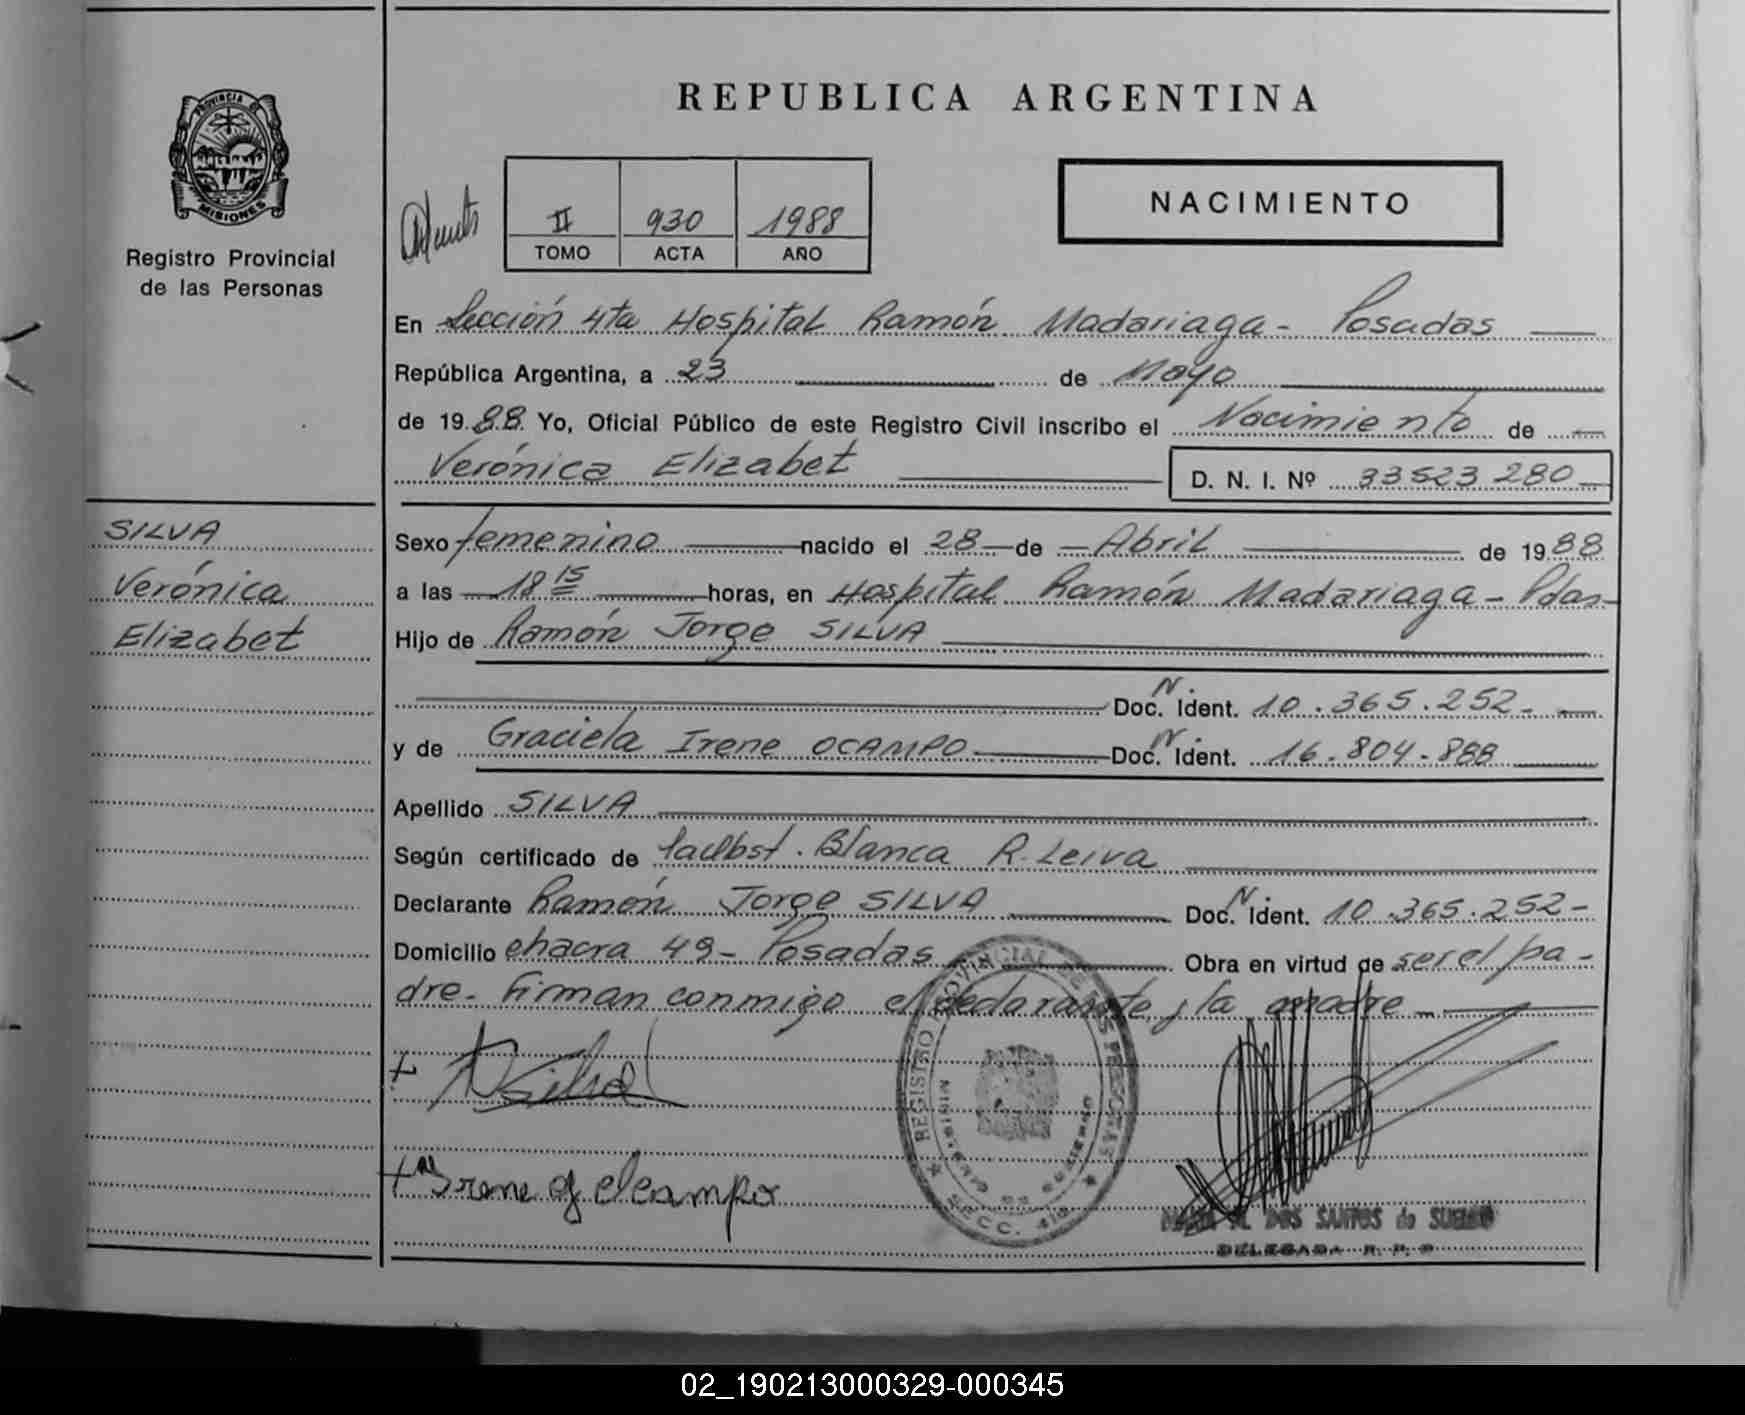 REPUBLICA ARGENTINA
PROVINCIA DE
MISIONES
Registro Provincial
de las Personas
II 930 1988
TOMO ACTA AÑO
NACIMIENTO
En Sección 4ta Hospital Ramón Madariaga - Posadas
República Argentina, a 23 de Mayo
de 1988 Yo, Oficial Público de este Registro Civil inscribo el Nacimiento de
Verónica Elizabet D. N. I. Nº 33523280
SILVA
Verónica
Elizabet
Sexo femenino nacido el 28 de Abril de 1988
a las 18 15 horas, en Hospital Ramón Madariaga - Pdas -
Hijo de Ramón Jorge SILVA
Doc. N. Ident. 10.365.252-
y de Graciela Irene OCAMPO Doc. N. Ident. 16.804-888
Apellido SILVA
Según certificado de Blanca R. Leiva
Declarante Ramón Jorge SILVA Doc. N. Ident. 10.365.252-
Domicilio chacra 49 - Posadas Obra en virtud de ser el pa-
dre. Firman conmigo el declarante y la madre
REGISTRO PROVINCIAL DE LAS PERSONAS
MINISTERIO DE GOBIERNO
SECC. 4ta
Silva
Irene G de Ocampo
DOS SANTOS de
DELEGADA R. P. P
02_190213000329-000345